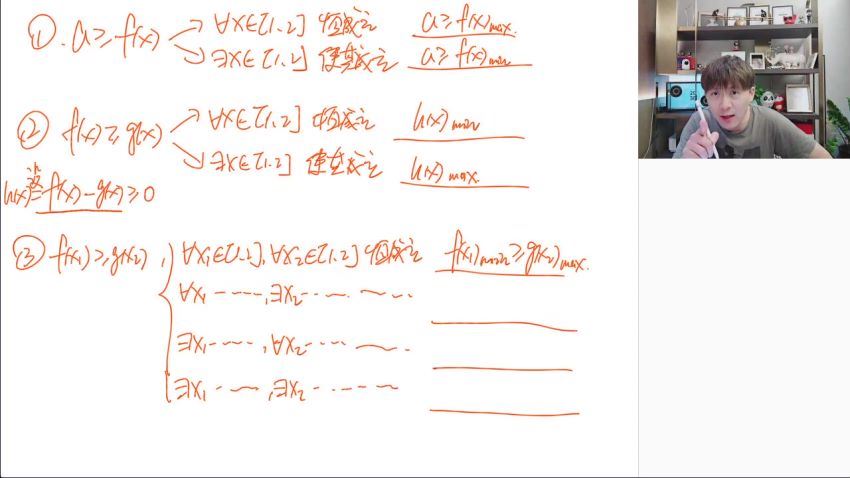 ① . a ≥ f(x) ∀x∈[1,2] 恒成立 a ≥ f(x)max.
∃x∈[1,2] 使其成立 a ≥ f(x)min
② f(x) ≥ g(x) ∀x∈[1,2] 恒成立 h(x)min
∃x∈[1,2] 使其成立 h(x)max.
设 h(x) = f(x) - g(x) ≥ 0
③ f(x₁) ≥ g(x₂) , ∀x₁∈[1,2], ∀x₂∈[1,2] 恒成立 f(x₁)min ≥ g(x₂)max.
∀x₁ ----, ∃x₂ ----
∃x₁ ----, ∀x₂ ----
∃x₁ ----, ∃x₂ ----